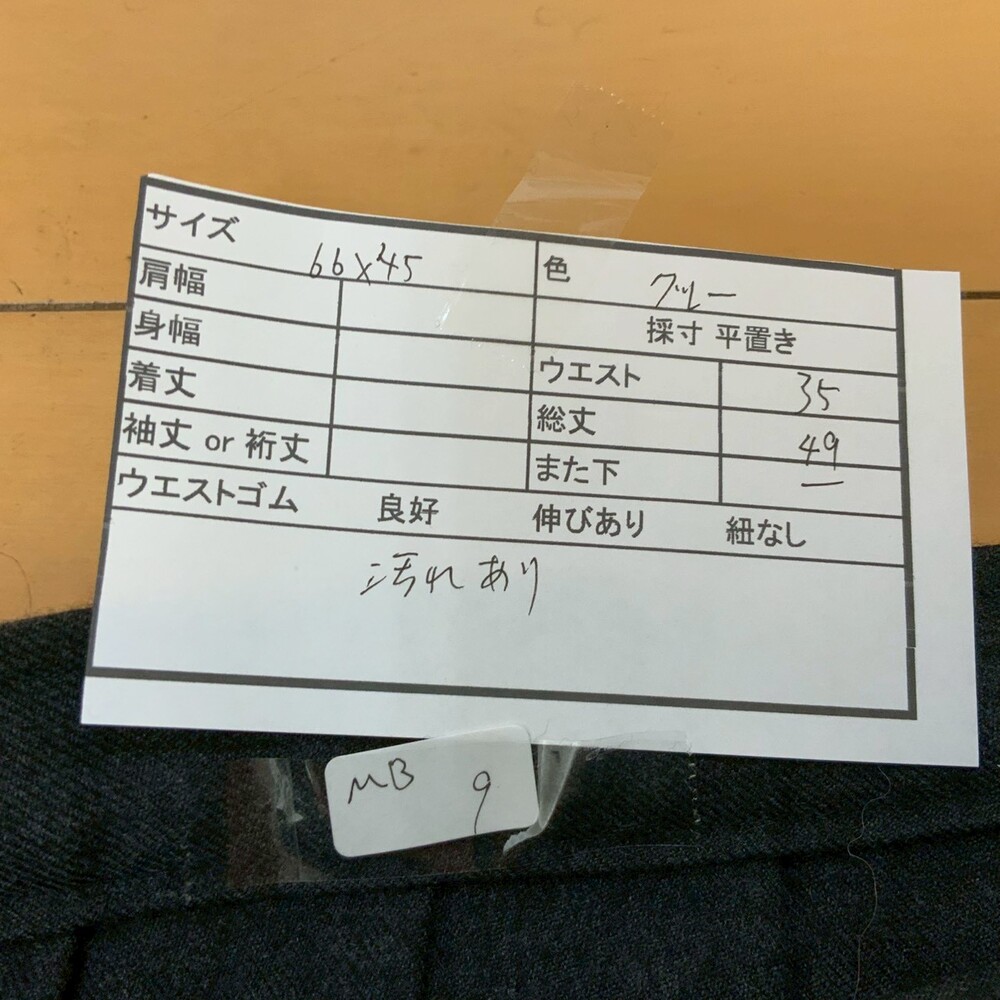 サイズ 66×45 色 グレー
肩幅
採寸 平置き
身幅
ウエスト 35
着丈
総丈 49
袖丈 or 裄丈
また下 —
ウエストゴム 良好 伸びあり 紐なし
汚れあり
MB 9